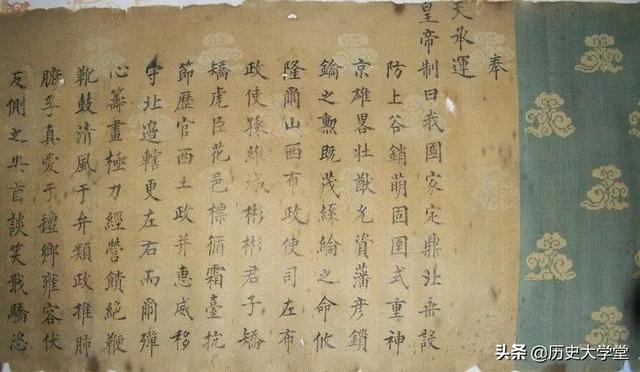 奉
天承運
皇帝制曰我國家定鼎北垂設
防上谷銷萌固圉式重神
京雄畧壯猷允資藩彥鎖
鑰之勲既茂綵綸之命攸
隆爾山西布政使司左布
政使孫維城彬彬君子矯
矯虎臣花邑標循霜臺抗
節歷官西土政并惠威移
守北邊轄更左右而爾殫
心籌畫極力經營饋絶鞭
靴鼓清風于弁類政推肺
腑孚真愛于氊鄉雍容伏
反側之央首談笑戢驕恣
头条 @历史大学堂